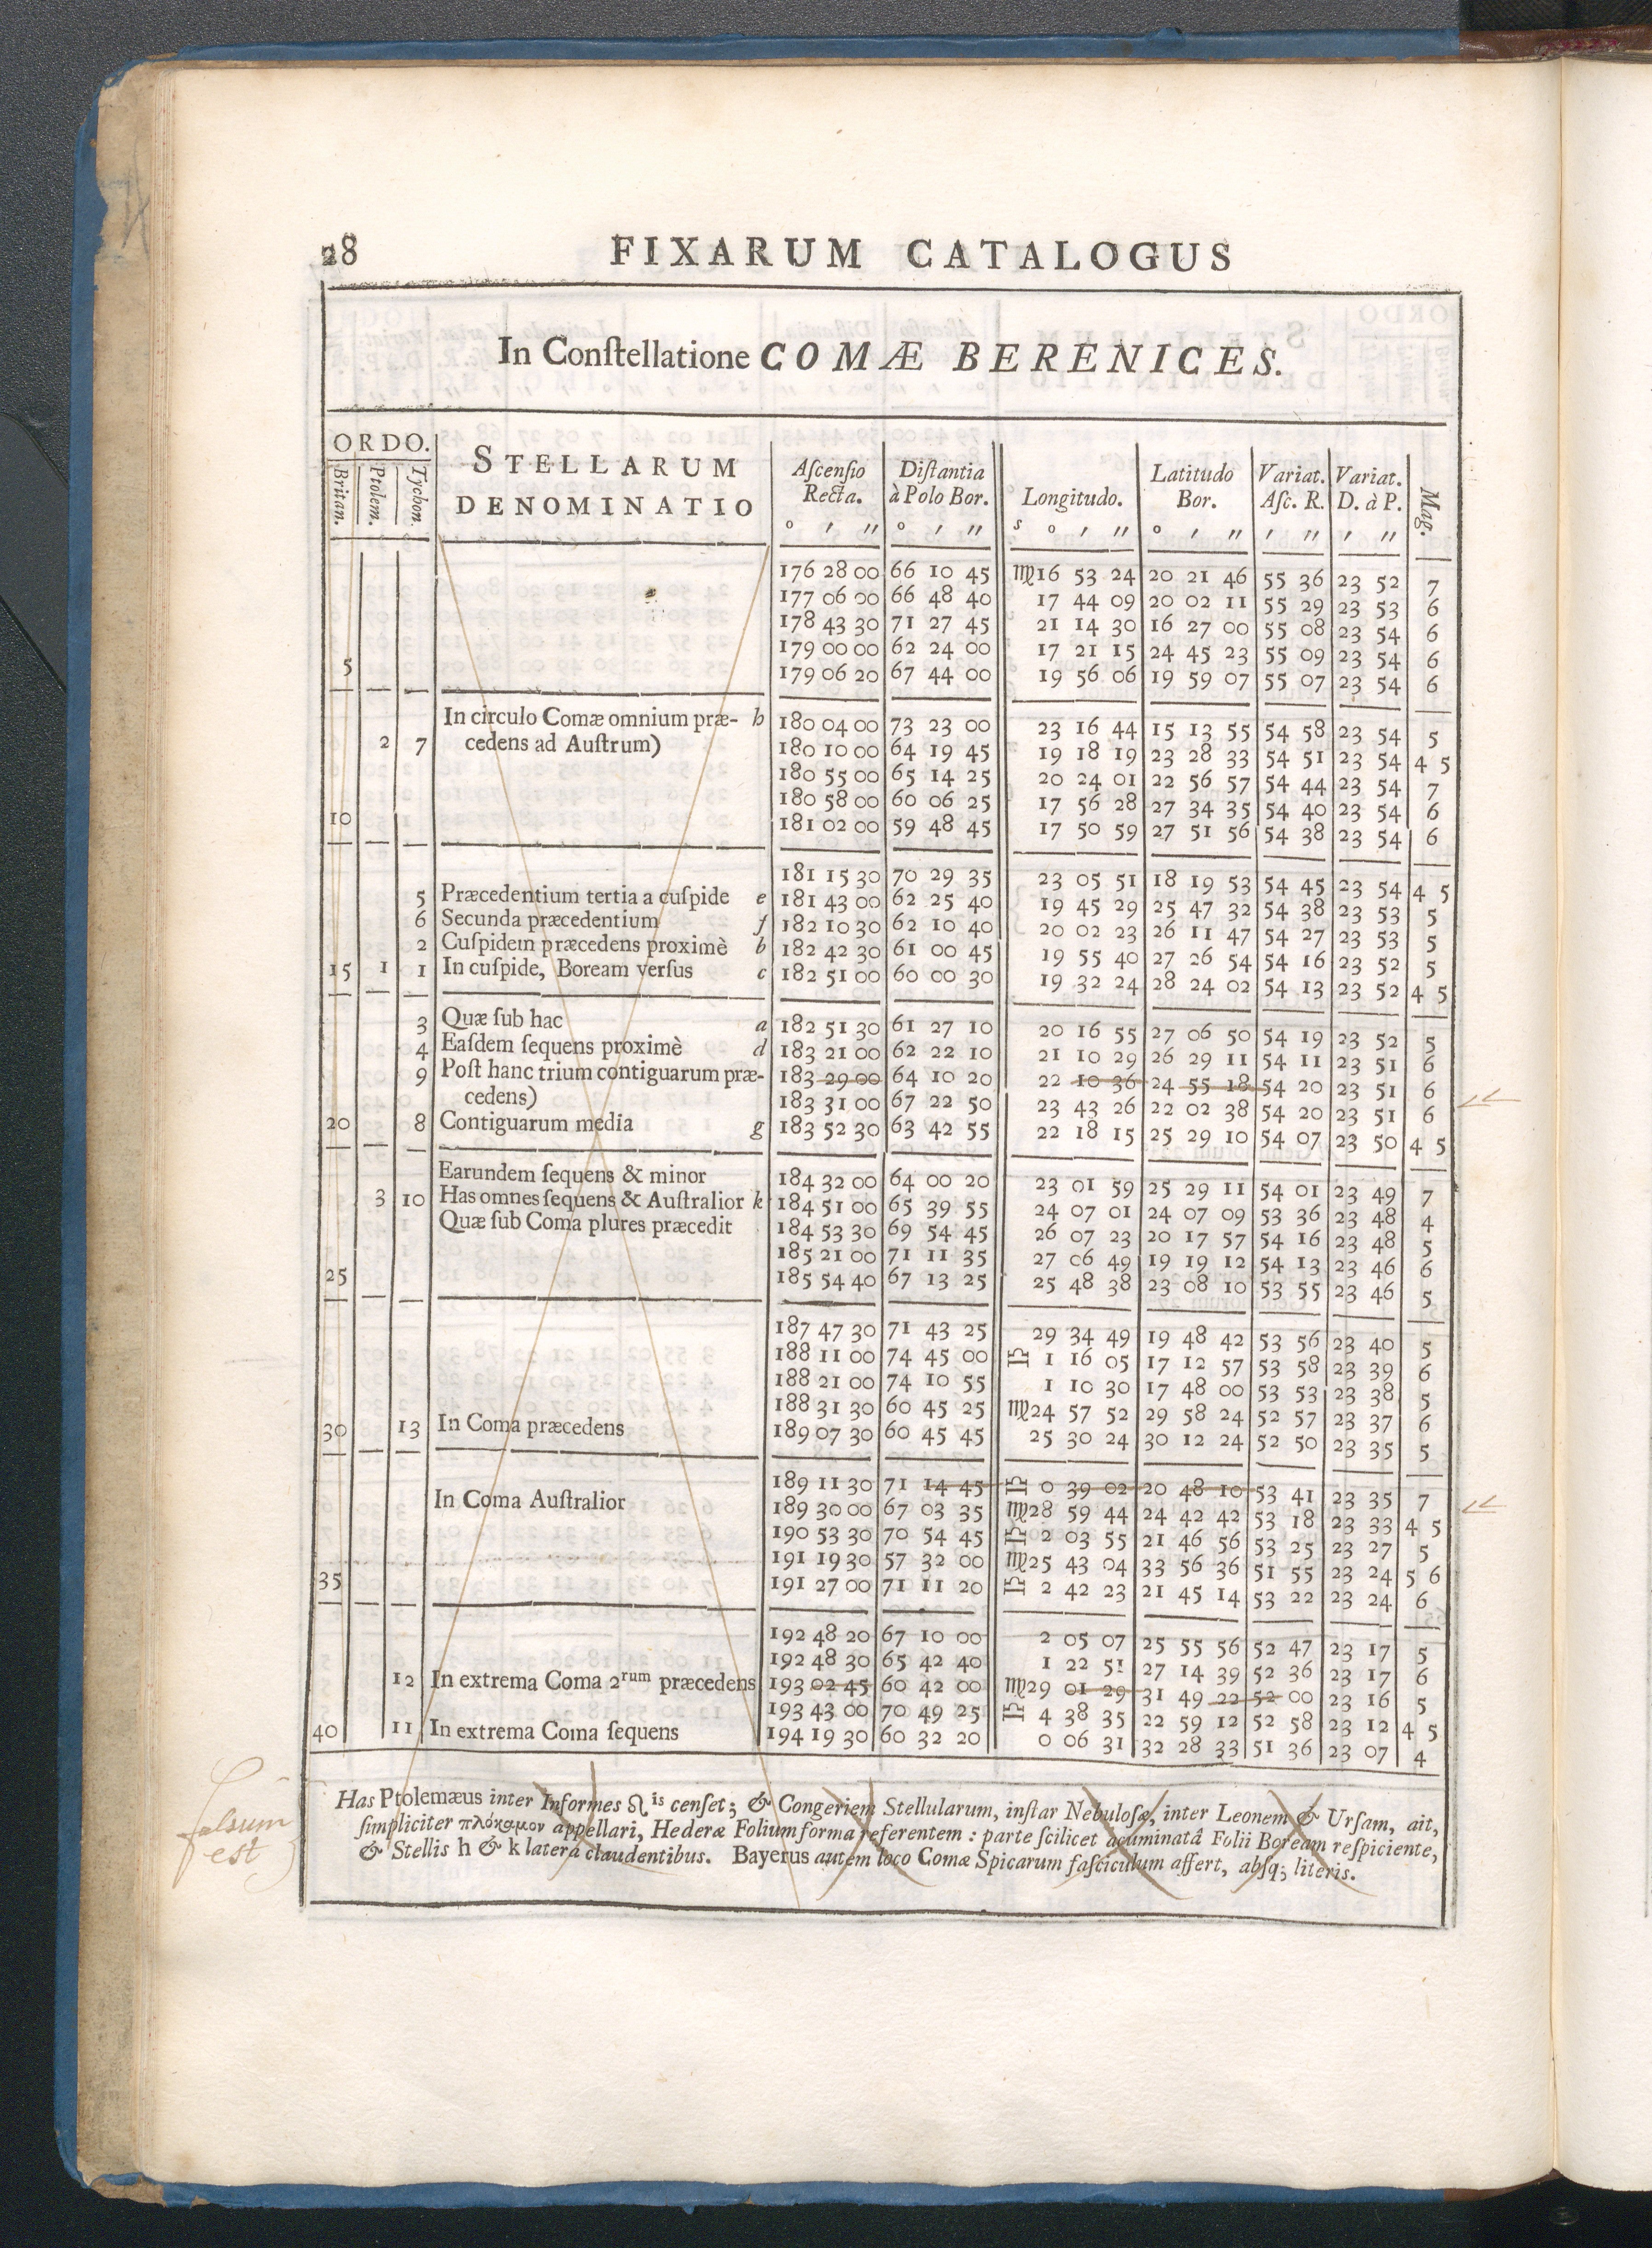 28 FIXARUM CATALOGUS
In Conſtellatione COMÆ BERENICES.
ORDO. STELLARUM DENOMINATIO Aſcenſio Recta. Diſtantia à Polo Bor. Longitudo. Latitudo Bor. Variat. Aſc. R. Variat. D. à P. Mag.
Britan. Ptolem. Tychon.
° ′ ″ ° ′ ″ s ° ′ ″ ° ′ ″ ′ ″ ′ ″
176 28 00 66 10 45 ♍16 53 24 20 21 46 55 36 23 52 7
177 06 00 66 48 40 17 44 09 20 02 11 55 29 23 53 6
178 43 30 71 27 45 21 14 30 16 27 00 55 08 23 54 6
179 00 00 62 24 00 17 21 15 24 45 23 55 09 23 54 6
5 179 06 20 67 44 00 19 56 06 19 59 07 55 07 23 54 6
In circulo Comæ omnium præ- h 180 04 00 73 23 00 23 16 44 15 13 55 54 58 23 54 5
2 7 cedens ad Auſtrum) 180 10 00 64 19 45 19 18 19 23 28 33 54 51 23 54 4 5
180 55 00 65 14 25 20 24 01 22 56 57 54 44 23 54 7
180 58 00 60 06 25 17 56 28 27 34 35 54 40 23 54 6
10 181 02 00 59 48 45 17 50 59 27 51 56 54 38 23 54 6
181 15 30 70 29 35 23 05 51 18 19 53 54 45 23 54 4 5
5 Præcedentium tertia a cuſpide e 181 43 00 62 25 40 19 45 29 25 47 32 54 38 23 53 5
6 Secunda præcedentium f 182 10 30 62 10 40 20 02 23 26 11 47 54 27 23 53 5
2 Cuſpidem præcedens proximè b 182 42 30 61 00 45 19 55 40 27 26 54 54 16 23 52 5
15 1 1 In cuſpide, Boream verſus c 182 51 00 60 00 30 19 32 24 28 24 02 54 13 23 52 4 5
3 Quæ ſub hac a 182 51 30 61 27 10 20 16 55 27 06 50 54 19 23 52 5
4 Eaſdem ſequens proximè d 183 21 00 62 22 10 21 10 29 26 29 11 54 11 23 51 6
9 Poſt hanc trium contiguarum præ- 183 29 00 64 10 20 22 10 36 24 55 18 54 20 23 51 6
cedens) 183 31 00 67 22 50 23 43 26 22 02 38 54 20 23 51 6
20 8 Contiguarum media g 183 52 30 63 42 55 22 18 15 25 29 10 54 07 23 50 4 5
Earundem ſequens & minor 184 32 00 64 00 20 23 01 59 25 29 11 54 01 23 49 7
3 10 Has omnes ſequens & Auſtralior k 184 51 00 65 39 55 24 07 01 24 07 09 53 36 23 48 4
Quæ ſub Coma plures præcedit 184 53 30 69 54 45 26 07 23 20 17 57 54 16 23 48 5
185 21 00 71 11 35 27 06 49 19 19 12 54 13 23 46 6
25 185 54 40 67 13 25 25 48 38 23 08 10 53 55 23 46 5
187 47 30 71 43 25 29 34 49 19 48 42 53 56 23 40 5
188 11 00 74 45 00 ♎ 1 16 05 17 12 57 53 58 23 39 6
188 21 00 74 10 55 1 10 30 17 48 00 53 53 23 38 5
188 31 30 60 45 25 ♍24 57 52 29 58 24 52 57 23 37 6
30 13 In Coma præcedens 189 07 30 60 45 45 25 30 24 30 12 24 52 50 23 35 5
189 11 30 71 14 45 ♎ 0 39 02 20 48 10 53 41 23 35 7
In Coma Auſtralior 189 30 00 67 03 35 ♍28 59 44 24 42 42 53 18 23 33 4 5
190 53 30 70 54 45 ♎ 2 03 55 21 46 56 53 25 23 27 5
191 19 30 57 32 00 ♍25 43 04 33 56 36 51 55 23 24 5 6
35 191 27 00 71 11 20 ♎ 2 42 23 21 45 14 53 22 23 24 6
192 48 20 67 10 00 2 05 07 25 55 56 52 47 23 17 5
192 48 30 65 42 40 1 22 51 27 14 39 52 36 23 17 6
12 In extrema Coma 2rum præcedens 193 02 45 60 42 00 ♍29 01 29 31 49 22 52 00 23 16 5
193 43 00 70 49 25 ♎ 4 38 35 22 59 12 52 58 23 12 4 5
40 11 In extrema Coma ſequens 194 19 30 60 32 20 0 06 31 32 28 33 51 36 23 07 4
Has Ptolemæus inter Informes ♌is cenſet; & Congeriem Stellularum, inſtar Nebuloſæ, inter Leonem & Urſam, ait,
ſimpliciter πλόκαμον appellari, Hederæ Folium forma referentem : parte ſcilicet acuminatâ Folii Boream reſpiciente,
& Stellis h & k latera claudentibus. Bayerus autem loco Comæ Spicarum faſciculum affert, abſq; literis.
falsum
est